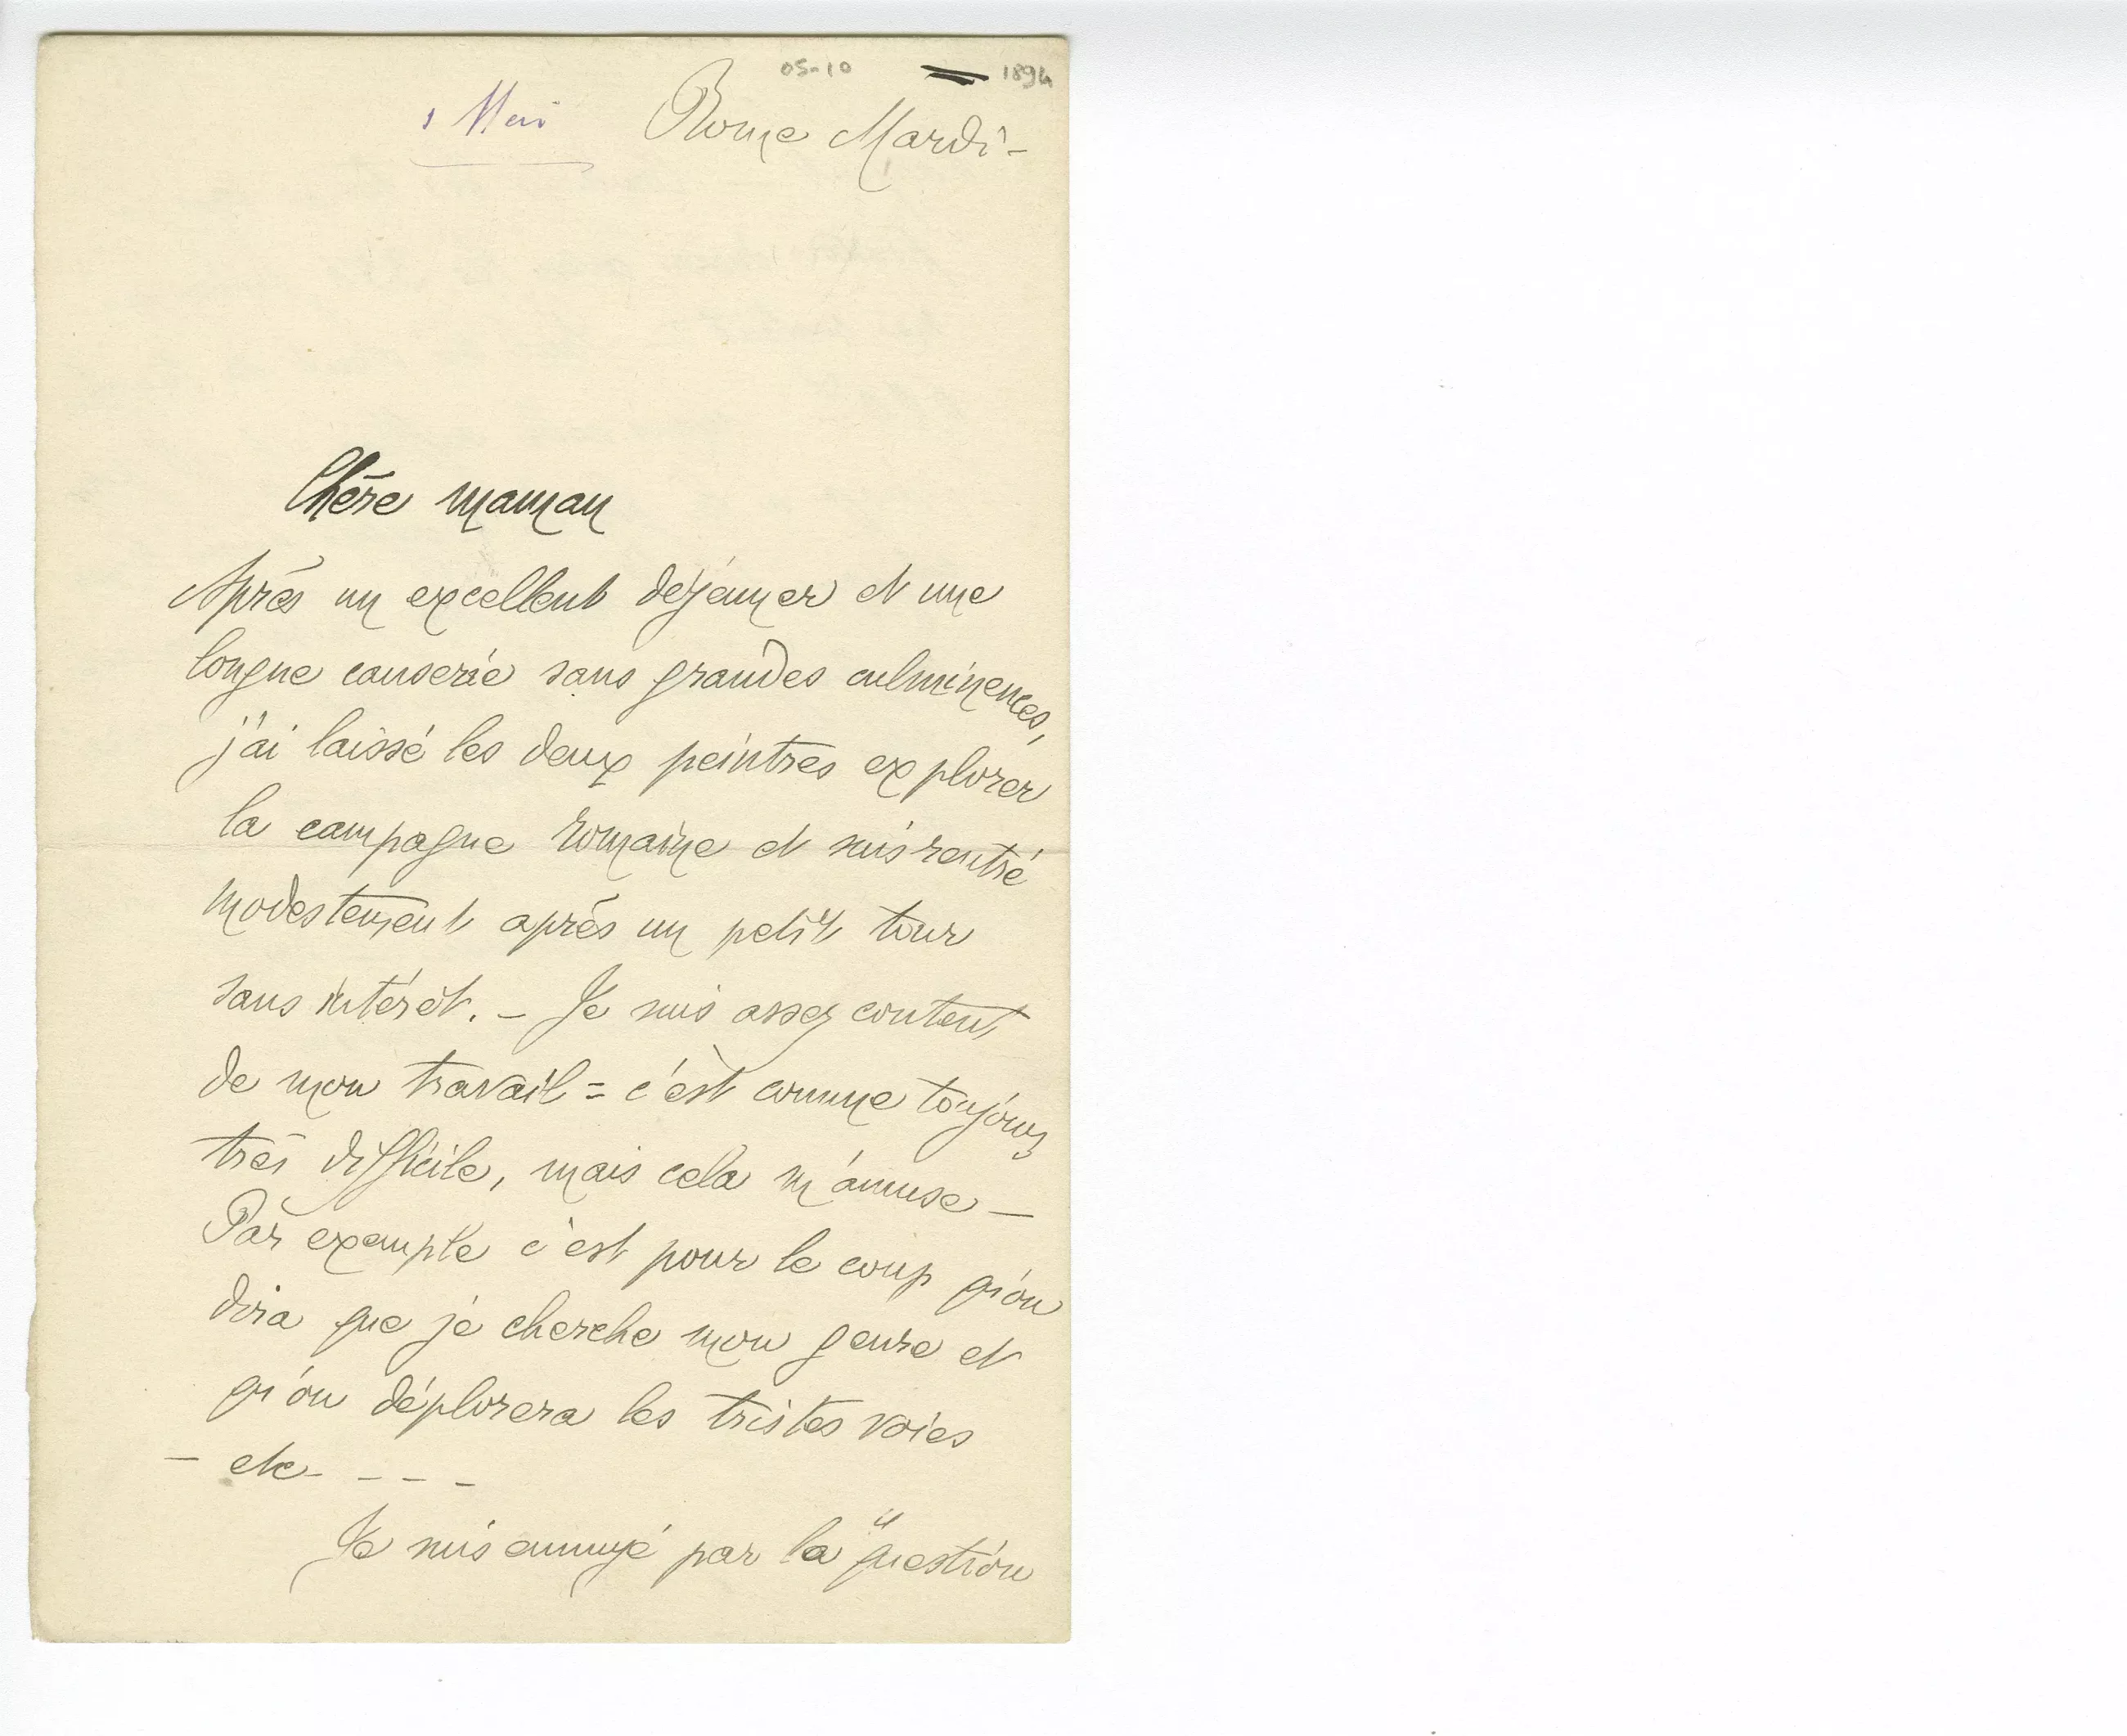 05-10 1894
1 Mai Rome Mardi -
Chère maman
Après un excellent déjeuner et une
longue causerie sans grandes culminences,
j'ai laissé les deux peintres explorer
la campagne romaine et suis rentré
modestement après un petit tour
sans intérêt. - Je suis assez content
de mon travail = c'est comme toujours
très difficile, mais cela m'amuse -
Par exemple c'est pour le coup qu'on
dira que je cherche mon genre et
qu'on déplorera les tristes voies
- etc - - - -
Je suis ennuyé par la "question